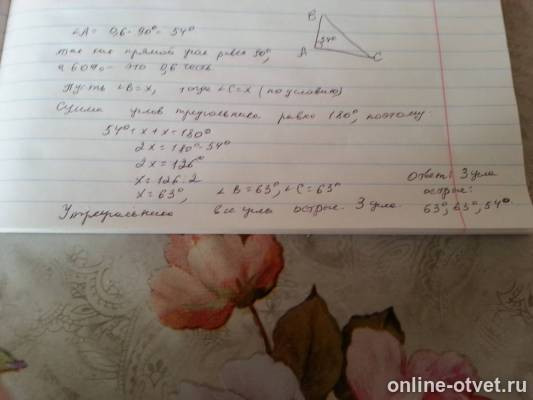 ∠A = 0,6 · 90° = 54°
так как прямой угол равен 90°,
а 60% - это 0,6 часть.
Пусть ∠B = x, тогда ∠C = x (по условию)
Сумма углов треугольника равна 180°, поэтому
54° + x + x = 180°
2x = 180° - 54°
2x = 126°
x = 126 : 2
x = 63°, ∠B = 63°, ∠C = 63°
У треугольника все углы острые. 3 угла
Ответ: 3 угла
острые:
63°, 63°, 54°.
B
A
54°
C
online-otvet.ru